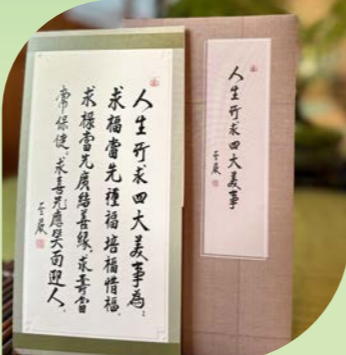 人生所求四大美事為：
求福當先種福培福惜福，
求祿當先廣結善緣，求壽當
常保健，求喜先應笑面迎人。
聖嚴
人生所求四大美事
聖嚴